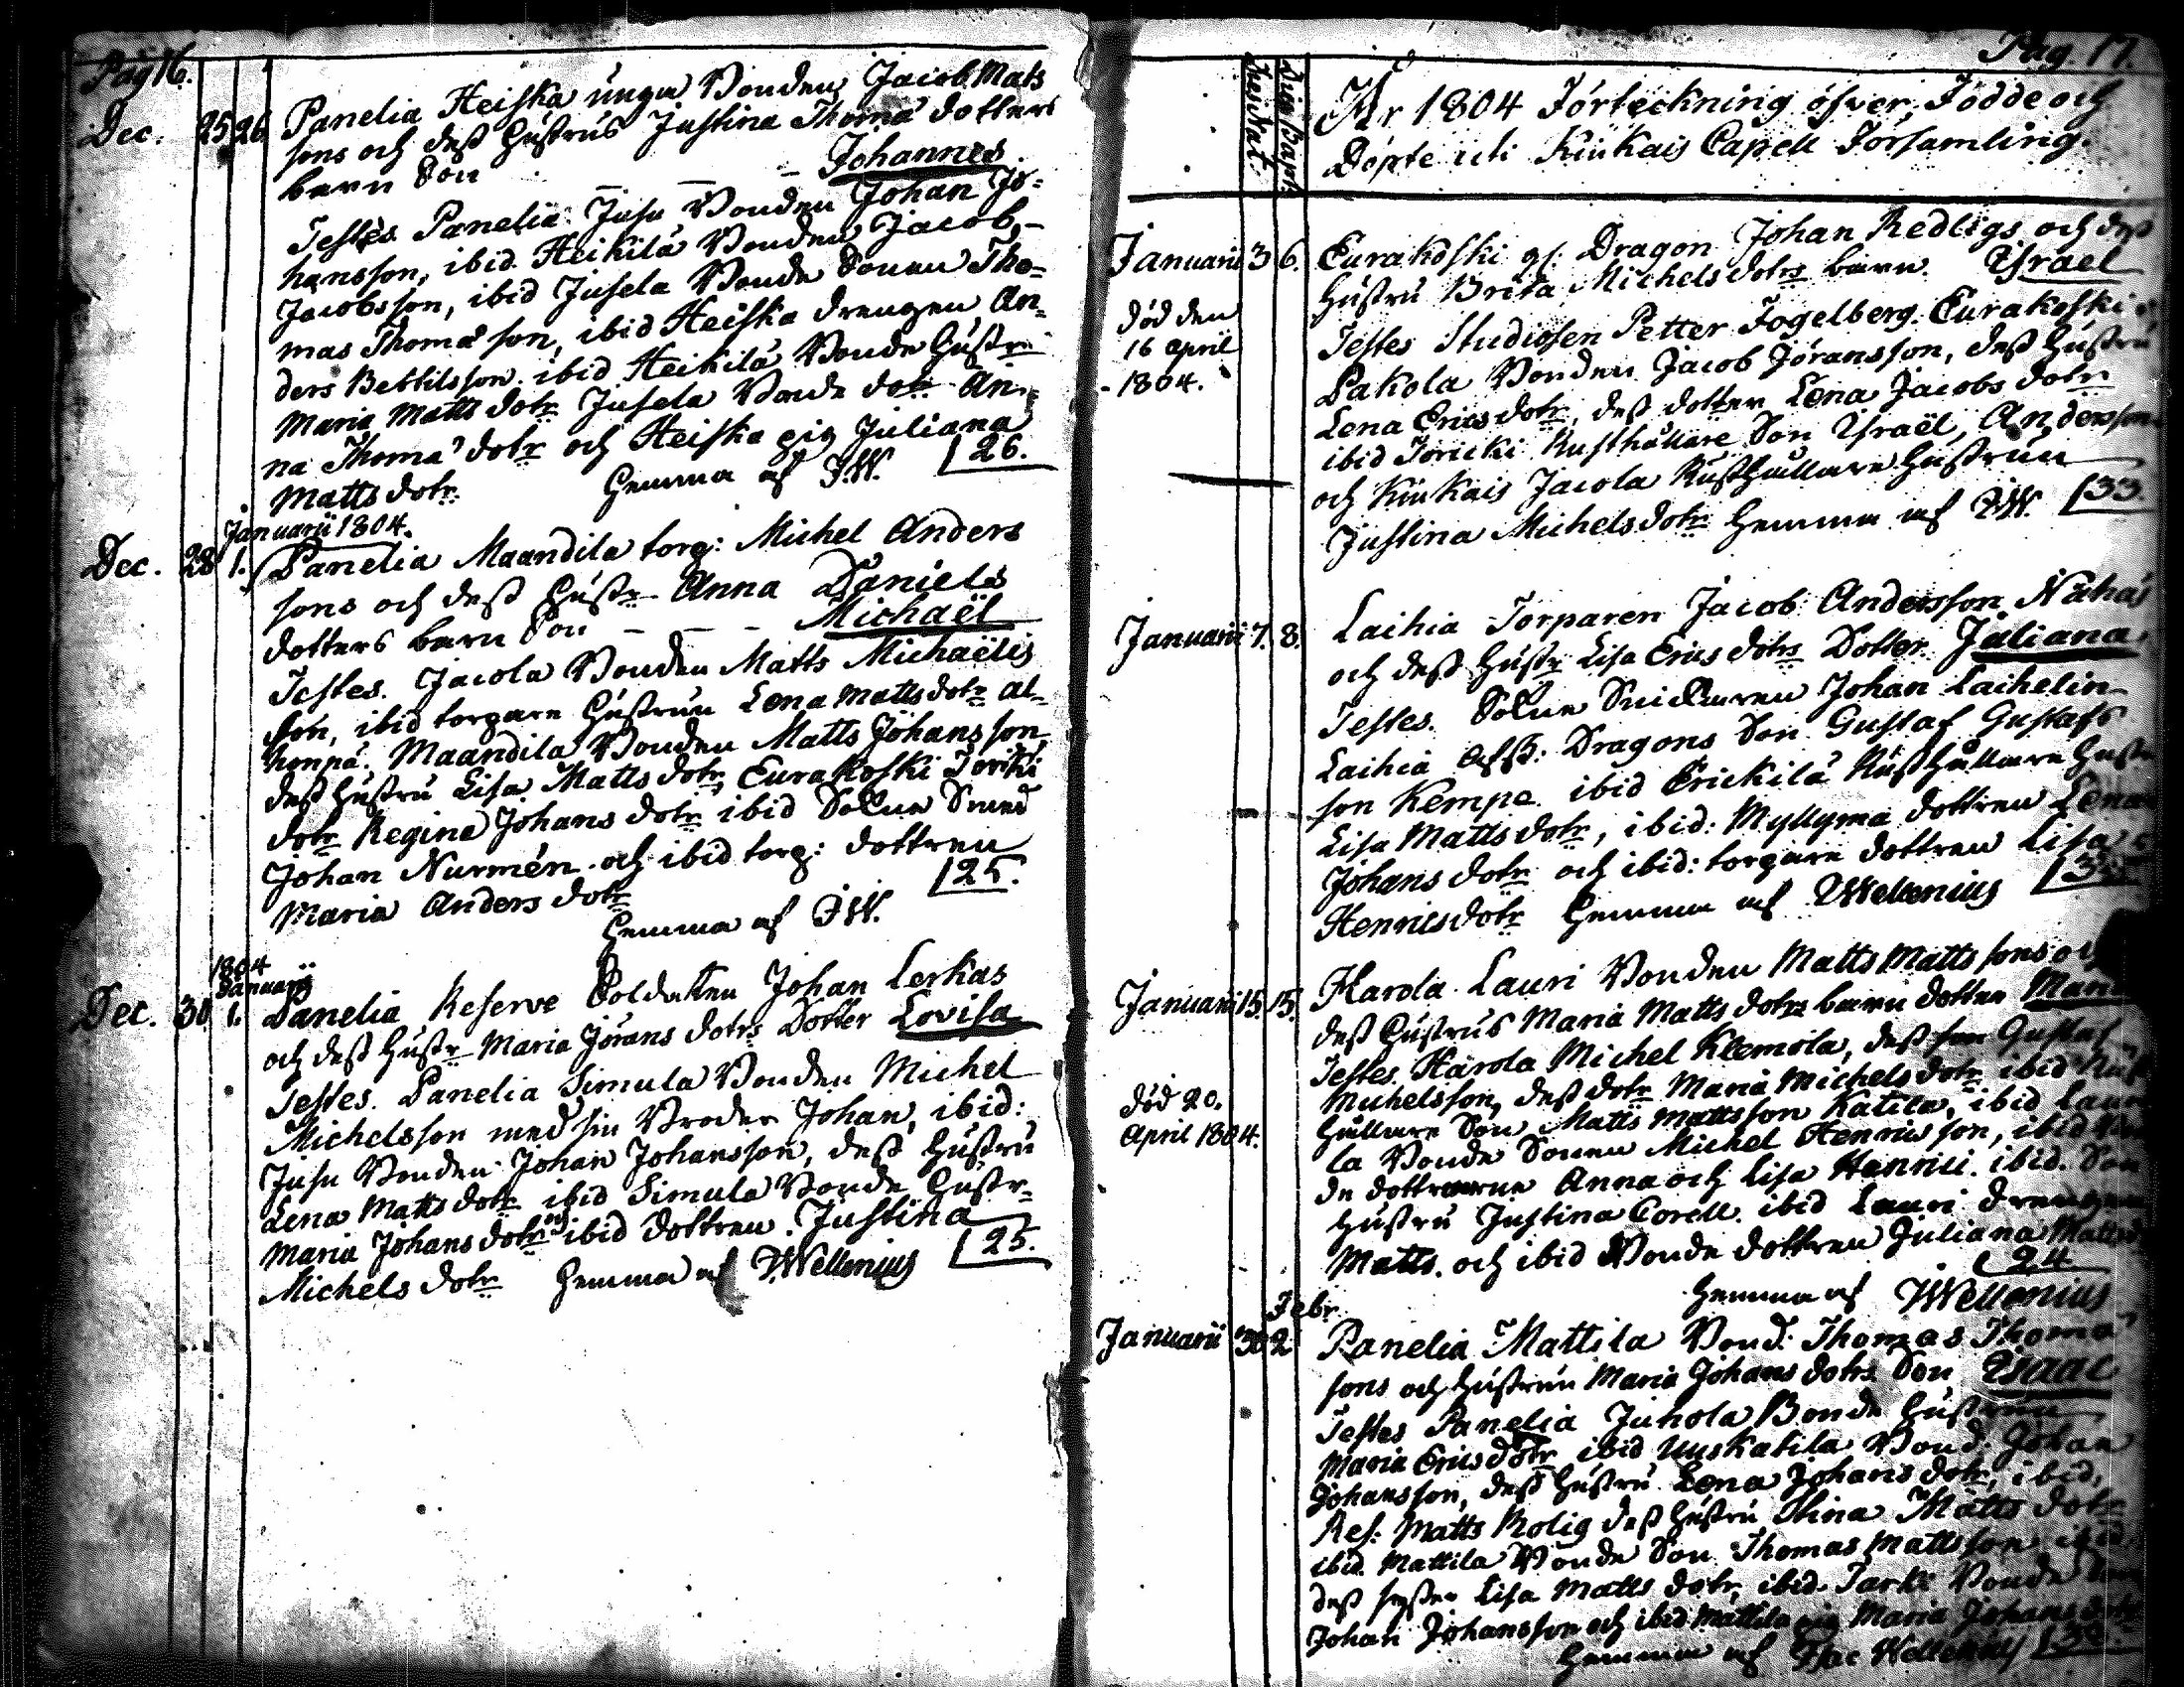 Pag 16.
Dec. 25 26 Panelia Heiska unga Bonden Jacob Mats
sons och dess Hustrus Justina Thomä dotters
barn Son — — — Johannes
Testes Panelia Jusu Bonden Johan Jo-
hansson, ibid Heikilä Bonden Jacob
Jacobsson, ibid Jusela Bonde Sonen Tho-
mas Thomä son, ibid Heiska drengen An-
ders Bettilsson. ibid Heikilä Bonde Hustr
Maria Matts dotr Jusela Bonde dotr An-
na Thomä dotr och Heiska pig Juliana
Matts dotr Hemma af I.W. 26.
Januarii 1804.
Dec. 28 1. Panelia Maandila torp: Michel Anders
sons och dess Hustr Anna Daniels
dotters barn Son — — — Michaël
Testes. Jacola Bonden Matts Michaëlis
son, ibid torpare Hustrun Lena Matts dotr
Maandila Bonden Matts Johansson
dess Hustru Lisa Matts dotr, Eurakoski Joriki
dotr Regina Johans dotr ibid Sokne Smed
Johan Nurmén och ibid torp: dottren
Maria Anders dotr 25.
Hemma af I.W.
1804
Januarii
Dec. 30 1. Panelia Reserve Soldaten Johan Lerkas
och dess Hustr Maria Jörans dotrs Dotter Lovisa
Testes. Panelia Simula Bonden Michel
Michelsson med sin Broder Johan, ibid:
Jusu Bonden Johan Johansson, dess Hustru
Lena Matts dotr ibid Simula Bonde Hustr
Maria Johans dotr ibid dottren Justina
Michels dotr Hemma af I Wellenius 25.
Pag. 17.
År 1804 Förteckning öfver Födde och
Döpte uti Kiukais Capell Församling.
Januarii 3 6. Eurakoski gl. Dragon Johan Redligs och dess
Hustru Brita Michels dotrs barn. Israel
död den
16 april
1804.
Testes Studiosen Petter Fogelberg. Eurakoski
Pakola Bonden Jacob Jöransson, dess Hustru
Lena Erics dotr, dess dotter Lena Jacobs dotr
ibid Joricki Rusthållare Son Israël Andersson
och Kiukais Jacola Rusthållare Hustrun
Justina Michels dotr Hemma af I.W. 33.
Januarii 7. 8. Laihia Torparen Jacob Andersson
och dess Hustr Lisa Erics dotrs Dotter Juliana.
Testes. Sokne Snickaren Johan Laihelin
Laihia afsk: Dragons Son Gustaf Gustafs
son Kempe ibid Erickilä Rusthållare Hustr
Lisa Matts dotr, ibid: Myllymä dottren Lena
Johans dotr och ibid: torpare dottren Lisa
Henrics dotr Hemma af I Wellenius
Januarii 15. 15. Harola Lauri Bonden Matts Matts sons och
dess Hustrus Maria Matts dotrs barn dotter Maria
Testes. Harola Michel Klemola, dess son Gustaf
Michelsson, dess dotr Maria Michels dotr ibid Rust
hållare Son Matts Mattsson Katila, ibid Lauri
död 20.
April 1804.
la Bonde Sonen Michel Henricsson, ibid Bon
de dottrarne Anna och Lisa Henrici. ibid. Sol
Hustru Justina Corell. ibid Lauri drengen
Matts. och ibid Bonde dottren Juliana Matts d
24.
Hemma af I Wellenius
Febr
Januarii 30 2 Panelia Mattila Bond: Thomas Thomä
sons och Hustrun Maria Johans dotrs Son Isaac
Testes Panelia Juhola Bonde Hustrun
Maria Erics dotr ibid Uuskatila Bond: Johan
Johansson, dess Hustru Lena Johans dotr, ibid.
Res: Matts Rolig dess Hustru Stina Matts dotr
ibid. Mattila Bonde Son Thomas Mattsson ibid
dess syster Lisa Matts dotr ibid. Tarki Bonde
Johan Johansson och ibid Mattila pig Maria Johans dotr
Hemma af Isac Wellenius